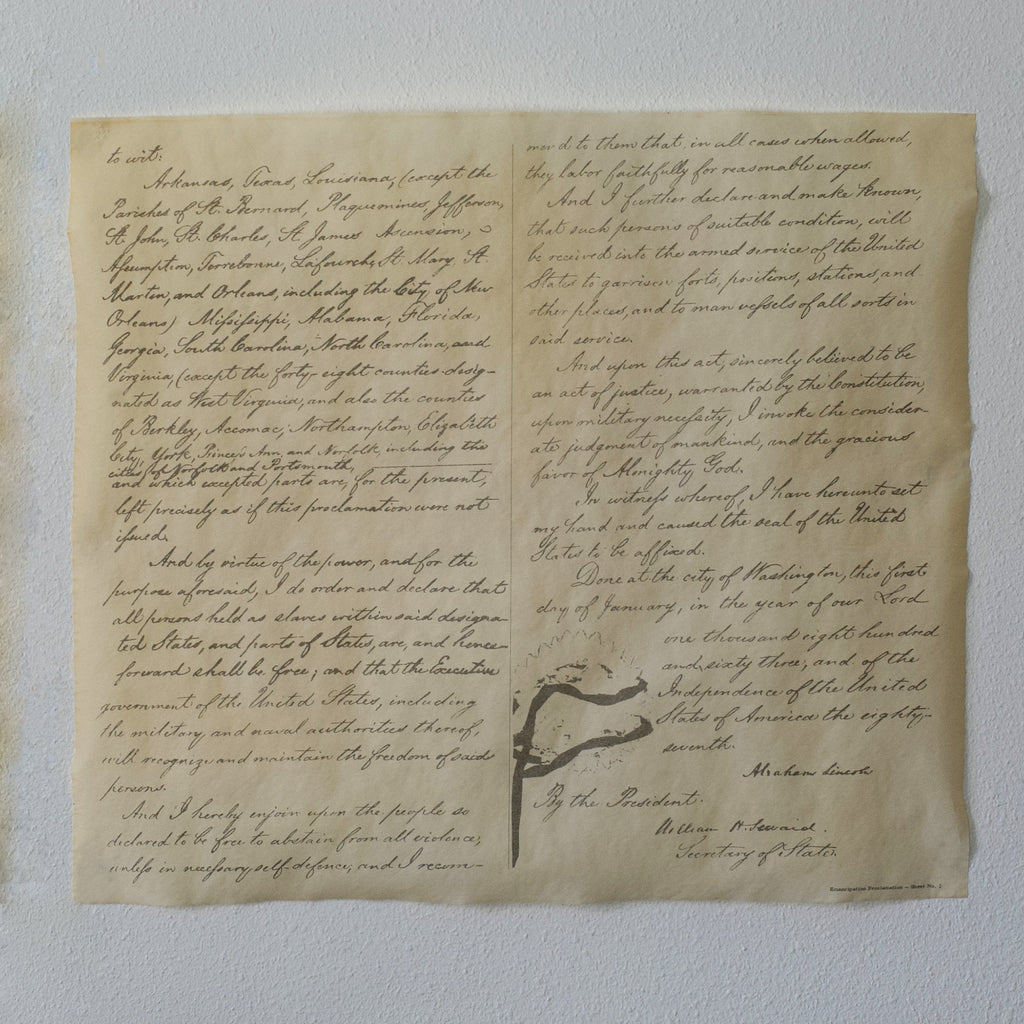 to wit:
Arkansas, Texas, Louisiana, (except the
Parishes of St. Bernard, Plaquemines, Jefferson,
St. John, St. Charles, St. James Ascension,
Assumption, Terrebonne, Lafourche, St. Mary, St.
Martin, and Orleans, including the City of New
Orleans) Mississippi, Alabama, Florida,
Georgia, South Carolina, North Carolina, and
Virginia, (except the forty-eight counties desig-
nated as West Virginia, and also the counties
of Berkley, Accomac, Northampton, Elizabeth
City, York, Princess Ann, and Norfolk, including the
cities of Norfolk and Portsmouth,
and which excepted parts are, for the present,
left precisely as if this proclamation were not
issued.
And by virtue of the power, and for the
purpose aforesaid, I do order and declare that
all persons held as slaves within said designa-
ted States, and parts of States, are, and hence-
forward shall be free; and that the Executive
government of the United States, including
the military and naval authorities thereof,
will recognize and maintain the freedom of said
persons.
And I hereby enjoin upon the people so
declared to be free to abstain from all violence,
unless in necessary self-defence; and I recom-
mend to them that in all cases when allowed,
they labor faithfully for reasonable wages.
And I further declare and make known,
that such persons of suitable condition, will
be received into the armed service of the United
States to garrison forts, positions, stations, and
other places, and to man vessels of all sorts in
said service.
And upon this act, sincerely believed to be
an act of justice, warranted by the Constitution,
upon military necessity, I invoke the consider-
ate judgment of mankind, and the gracious
favor of Almighty God.
In witness whereof, I have hereunto set
my hand and caused the seal of the United
States to be affixed.
Done at the city of Washington, this first
day of January, in the year of our Lord
one thousand eight hundred
and sixty three, and of the
Independence of the United
States of America the eighty-
seventh.
Abraham Lincoln
By the President.
William H. Seward.
Secretary of State.
Emancipation Proclamation — Sheet No. 2